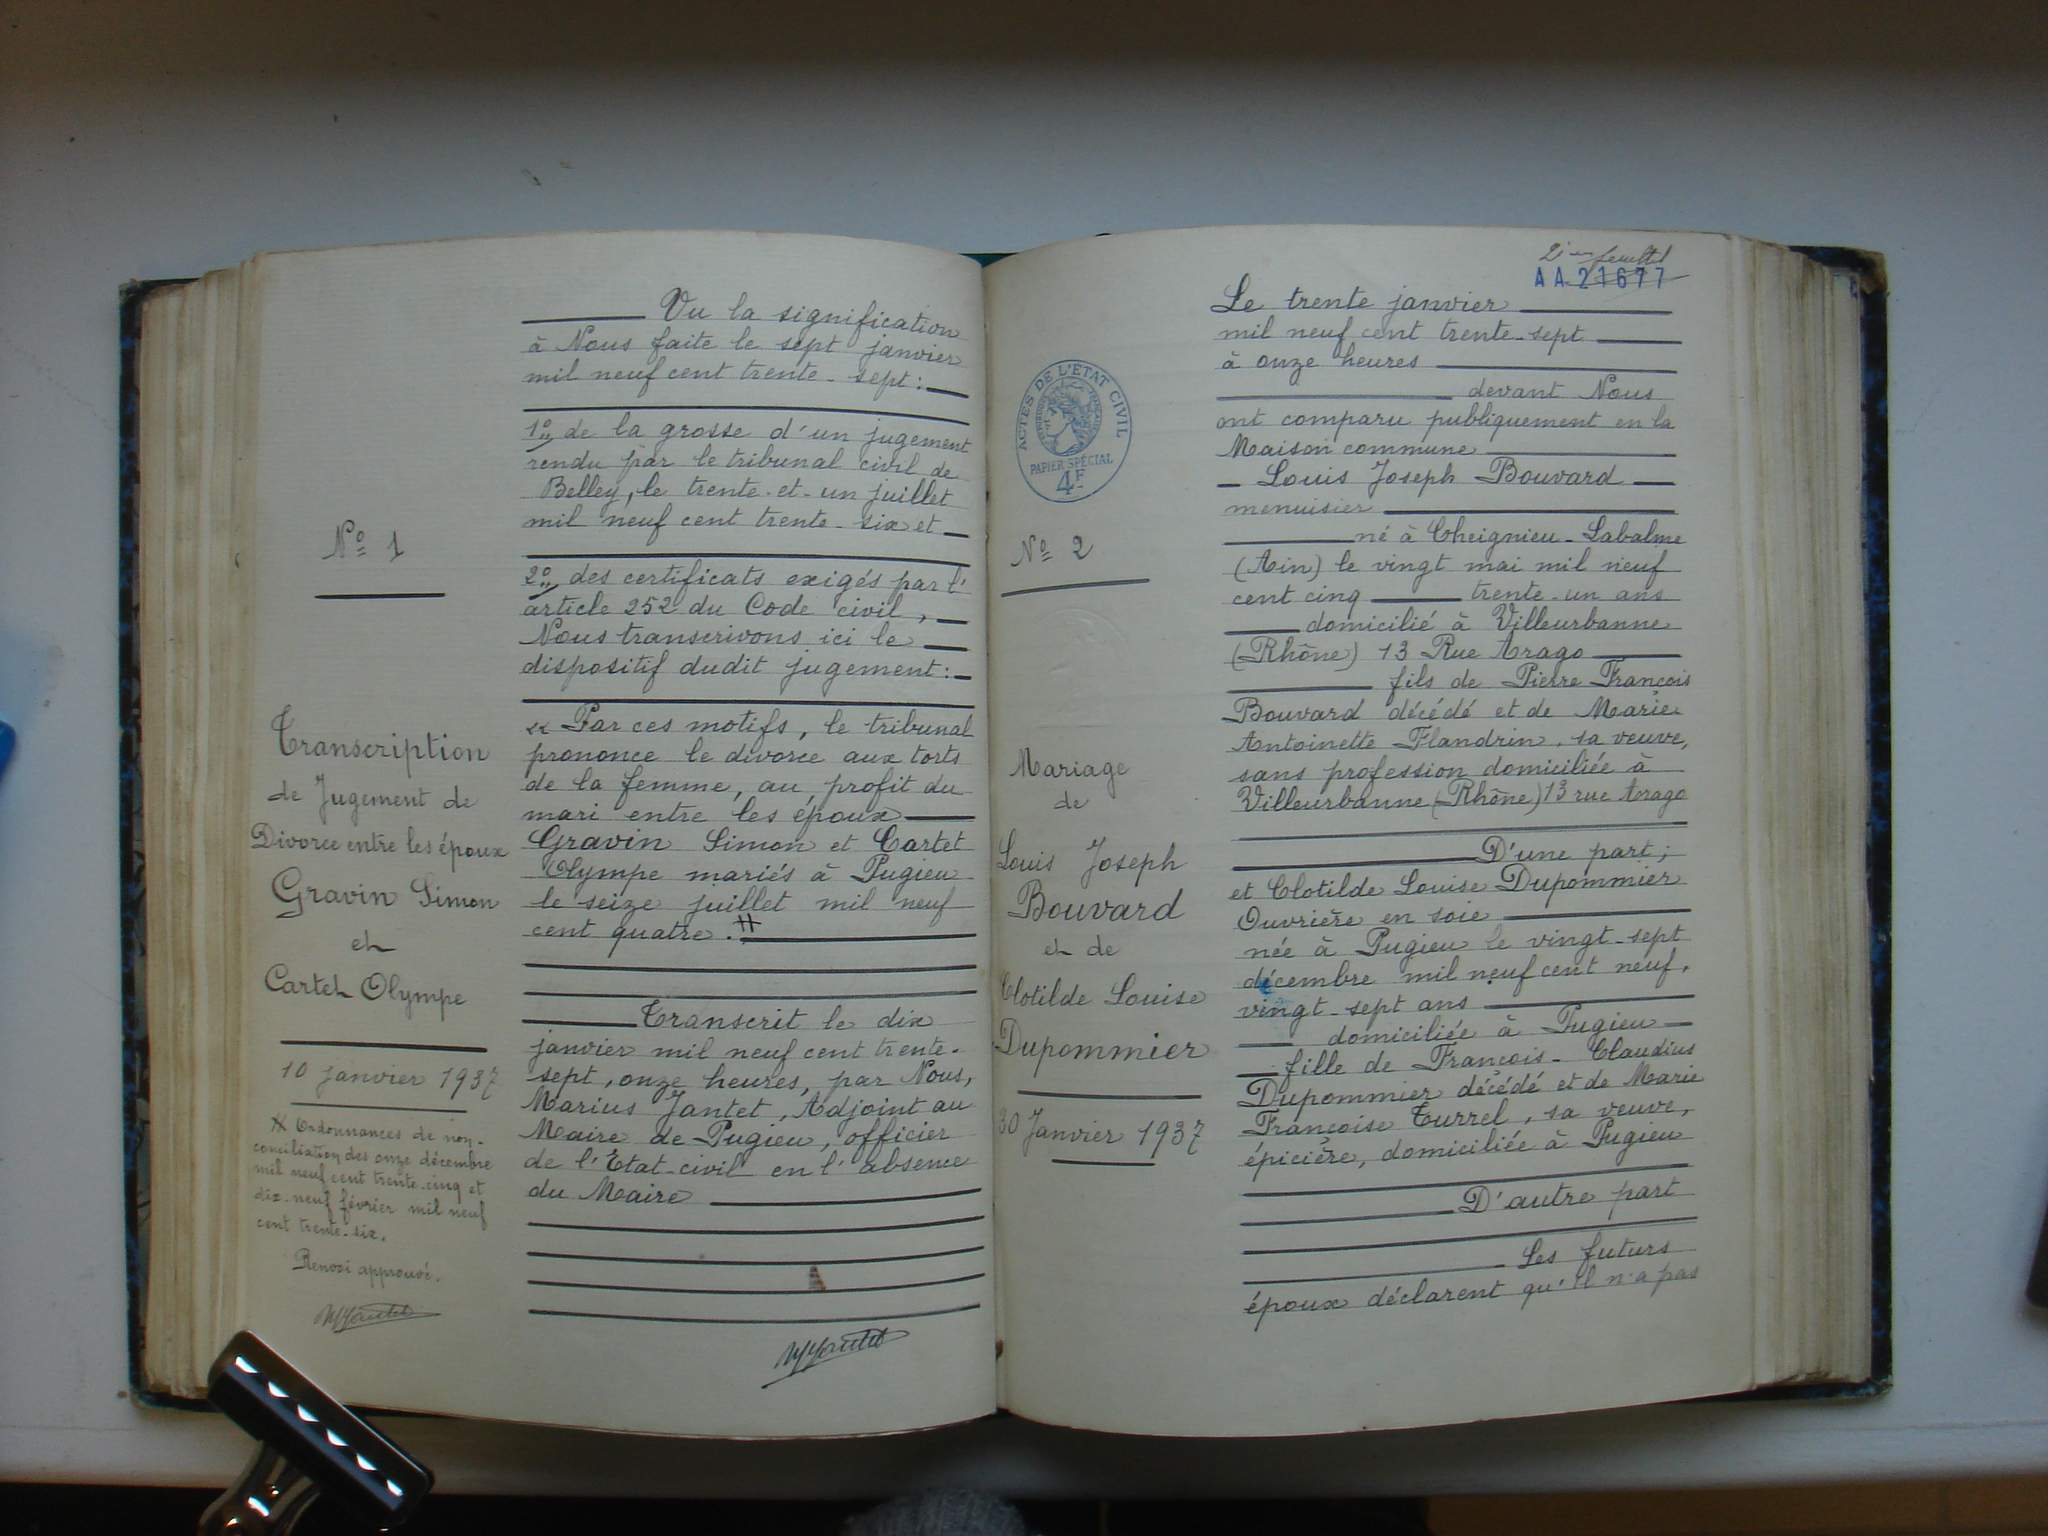 N° 1
Transcription
de Jugement de
Divorce entre les époux
Gravin Simon
et
Cartet Olympe
10 janvier 1937
# Ordonnances de non-
conciliation des onze décembre
mil neuf cent trente-cinq et
dix-neuf février mil neuf
cent trente-six.
Renvoi approuvé.
Vu la signification
à Nous faite le sept janvier
mil neuf cent trente-sept :
1° de la grosse d'un jugement
rendu par le tribunal civil de
Belley, le trente-et-un juillet
mil neuf cent trente-six et
2° des certificats exigés par l'
article 252 du Code civil,
Nous transcrivons ici le
dispositif dudit jugement :
« Par ces motifs, le tribunal
prononce le divorce aux torts
de la femme, au profit du
mari entre les époux
Gravin Simon et Cartet
Olympe mariés à Pugieu
le seize juillet mil neuf
cent quatre. #
Transcrit le dix
janvier mil neuf cent trente-
sept, onze heures, par Nous,
Marius Jantet, Adjoint au
Maire de Pugieu, officier
de l'Etat-civil en l'absence
du Maire
MJantet
2ième feuillet
AA21677
ACTES DE L'ETAT CIVIL
PAPIER SPÉCIAL
4F
N° 2
Mariage
de
Louis Joseph
Bouvard
et de
Clotilde Louise
Dupommier
30 Janvier 1937
Le trente janvier
mil neuf cent trente-sept
à onze heures
devant Nous
ont comparu publiquement en la
Maison commune
Louis Joseph Bouvard
menuisier
né à Cheignieu-Labalme
(Ain) le vingt mai mil neuf
cent cinq trente-un ans
domicilié à Villeurbanne
(Rhône) 13 Rue Arago
fils de Pierre François
Bouvard décédé et de Marie
Antoinette Flandrin, sa veuve,
sans profession domiciliée à
Villeurbanne (Rhône) 13 rue Arago
D'une part ;
et Clotilde Louise Dupommier
Ouvrière en soie
née à Pugieu le vingt-sept
décembre mil neuf cent neuf,
vingt-sept ans
domiciliée à Pugieu
fille de François-Claudius
Dupommier décédé et de Marie
Françoise Turrel, sa veuve,
épicière, domiciliée à Pugieu
D'autre part
Les futurs
époux déclarent qu'il n'a pas